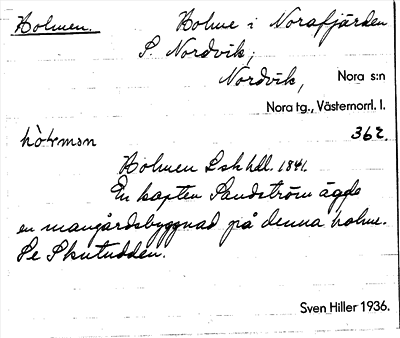 Holmen.
Holme i Norafjärden
S. Nordvik,
Nordvik, Nora s:n
Nora tg., Västernorrl. l.
362.
Holmen Lskhdl. 1841.
En kapten Sandström ägde
en mangårdsbyggnad på denna holme.
Se Skutudden.
Sven Hiller 1936.